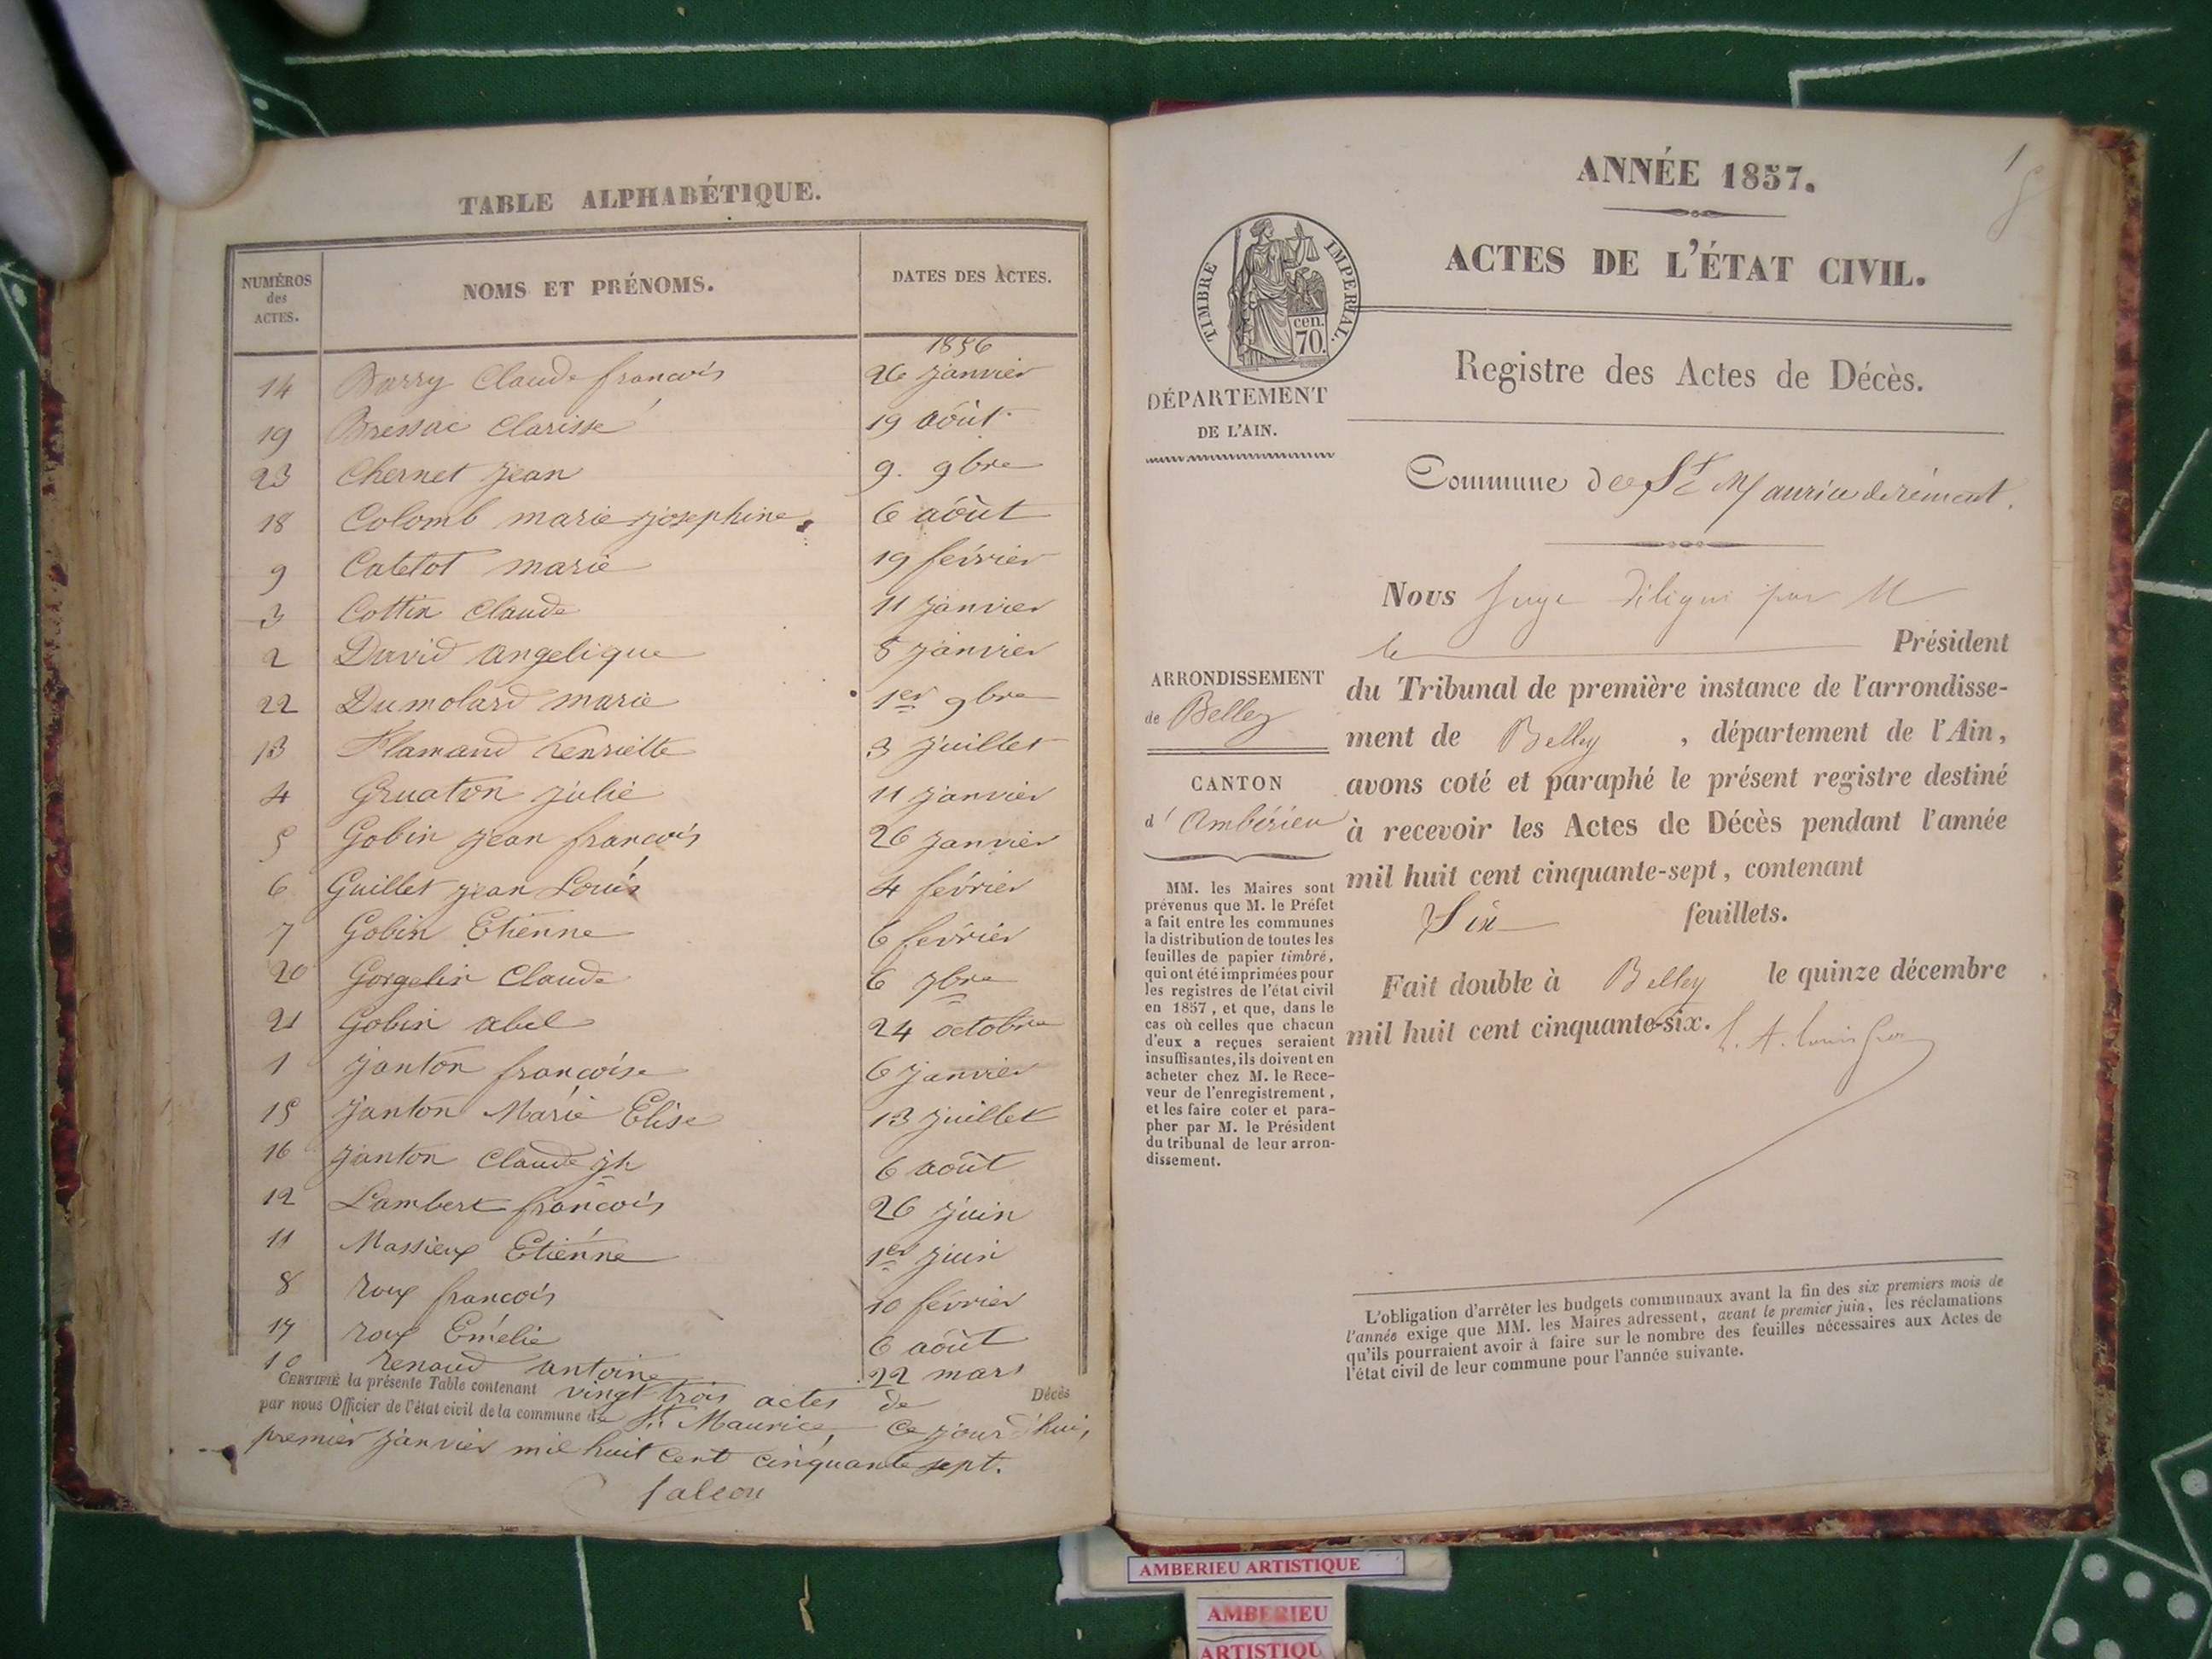 TABLE ALPHABÉTIQUE.
NUMÉROS des ACTES.
NOMS ET PRÉNOMS.
DATES DES ACTES.
1856
14 Barry Claude francois 26 janvier
19 Bressac Clarisse 19 août
23 Chernet jean 9. 9bre
18 Colomb marie josephine 6 août
9 Catelot marie 19 février
3 Cottin Claude 11 janvier
2 David angelique 8 janvier
22 Dumolard marie 1er 9bre
13 Flamand henriette 3 juillet
4 Gruaton julie 11 janvier
5 Gobin jean francois 26 janvier
6 Guillet jean Louis 4 février
7 Gobin Etienne 6 février
20 Gorgelin Claude 6 7bre
21 Gobin abel 24 octobre
1 janton francoise 6 janvier
15 janton Marie Elise 13 juillet
16 janton Claude jh 6 août
12 Lambert francois 26 juin
11 Massieux Etienne 1er juin
8 roux francois 10 février
17 roux Emélie 6 août
10 renaud antoine 22 mars
CERTIFIÉ la présente Table contenant vingt trois actes de Décès
par nous Officier de l'état civil de la commune de St. Maurice, ce jour d'hui,
premier janvier mil huit cent cinquante sept.
falcou
1
ANNÉE 1857.
ACTES DE L'ÉTAT CIVIL.
TIMBRE IMPERIAL.
cen.
70.
DÉPARTEMENT
DE L'AIN.
Registre des Actes de Décès.
Commune de St Maurice de rément.
Nous Juge délégué par M
le Président
du Tribunal de première instance de l'arrondisse-
ment de Belley, département de l'Ain,
avons coté et paraphé le présent registre destiné
à recevoir les Actes de Décès pendant l'année
mil huit cent cinquante-sept, contenant
Six feuillets.
Fait double à Belley le quinze décembre
mil huit cent cinquante-six.
ARRONDISSEMENT
de Belley
CANTON
d' Ambérieu
MM. les Maires sont
prévenus que M. le Préfet
a fait entre les communes
la distribution de toutes les
feuilles de papier timbré,
qui ont été imprimées pour
les registres de l'état civil
en 1857, et que, dans le
cas où celles que chacun
d'eux a reçues seraient
insuffisantes, ils doivent en
acheter chez M. le Rece-
veur de l'enregistrement,
et les faire coter et para-
pher par M. le Président
du tribunal de leur arron-
dissement.
L'obligation d'arrêter les budgets communaux avant la fin des six premiers mois de
l'année exige que MM. les Maires adressent, avant le premier juin, les réclamations
qu'ils pourraient avoir à faire sur le nombre des feuilles nécessaires aux Actes de
l'état civil de leur commune pour l'année suivante.
AMBERIEU ARTISTIQUE
AMBERIEU
ARTISTIQU